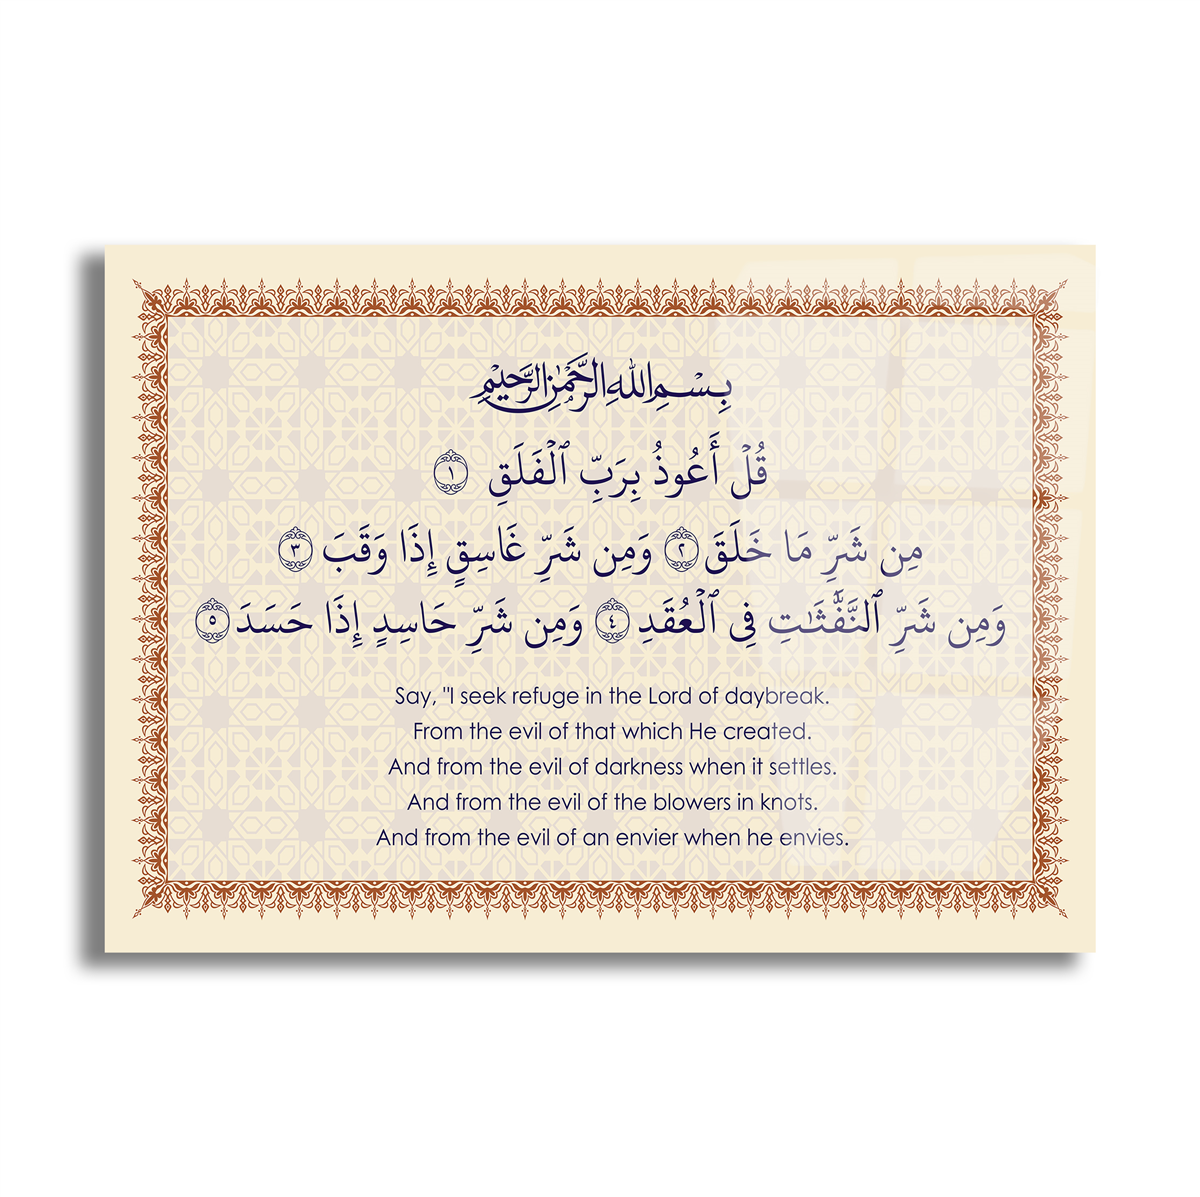 بِسْمِ اللهِ الرَّحْمٰنِ الرَّحِيْمِ
قُلْ أَعُوذُ بِرَبِّ ٱلْفَلَقِ ١
مِن شَرِّ مَا خَلَقَ ٢ وَمِن شَرِّ غَاسِقٍ إِذَا وَقَبَ ٣
وَمِن شَرِّ ٱلنَّفَّٰثَٰتِ فِى ٱلْعُقَدِ ٤ وَمِن شَرِّ حَاسِدٍ إِذَا حَسَدَ ٥
Say, "I seek refuge in the Lord of daybreak.
From the evil of that which He created.
And from the evil of darkness when it settles.
And from the evil of the blowers in knots.
And from the evil of an envier when he envies.